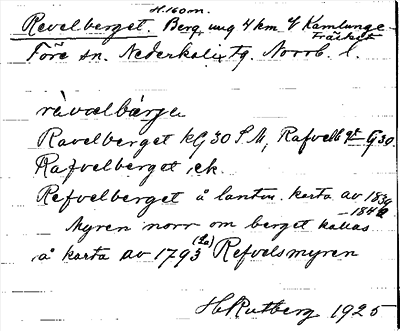 H. 160 m.
Revelberget. Berg ung 4 km V Kamlunge-
träsket
Töre sn. Nederkalix tg. Norrb. l.
rävœlbärje
Ravelberget kG 30 S M, Rafvelb
Rafvelberget, ek.
Refvelberget å lantm. karta av 1839
-1842
Myren norr om berget kallas
å karta av 1793 Refvelsmyren
H Rutberg 1925